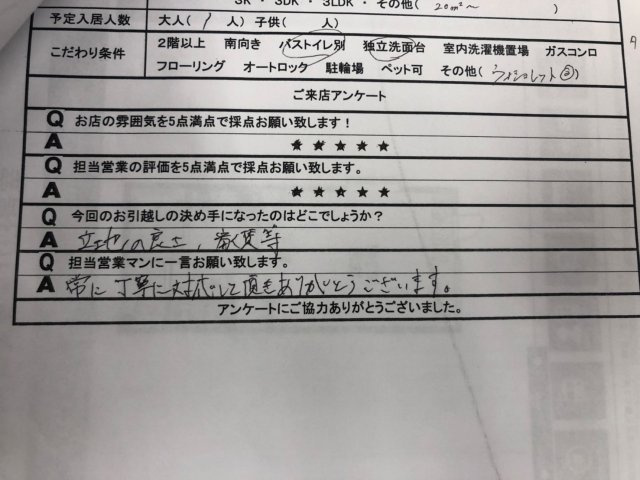 5K ・ 5DK ・ 5LDK ・ その他( 20m²～ )
予定入居人数 大人( 1 人) 子供( 人)
こだわり条件 2階以上 南向き バストイレ別 独立洗面台 室内洗濯機置場 ガスコンロ
フローリング オートロック 駐輪場 ペット可 その他( ウォシュレット )
ご来店アンケート
Q お店の雰囲気を5点満点で採点お願い致します！
A ★ ★ ★ ★ ★
Q 担当営業の評価を5点満点で採点お願い致します。
A ★ ★ ★ ★ ★
Q 今回のお引越しの決め手になったのはどこでしょうか？
A 立地の良さ、審査等
Q 担当営業マンに一言お願い致します。
A 常に丁寧に対応して頂きありがとうございます。
アンケートにご協力ありがとうございました。